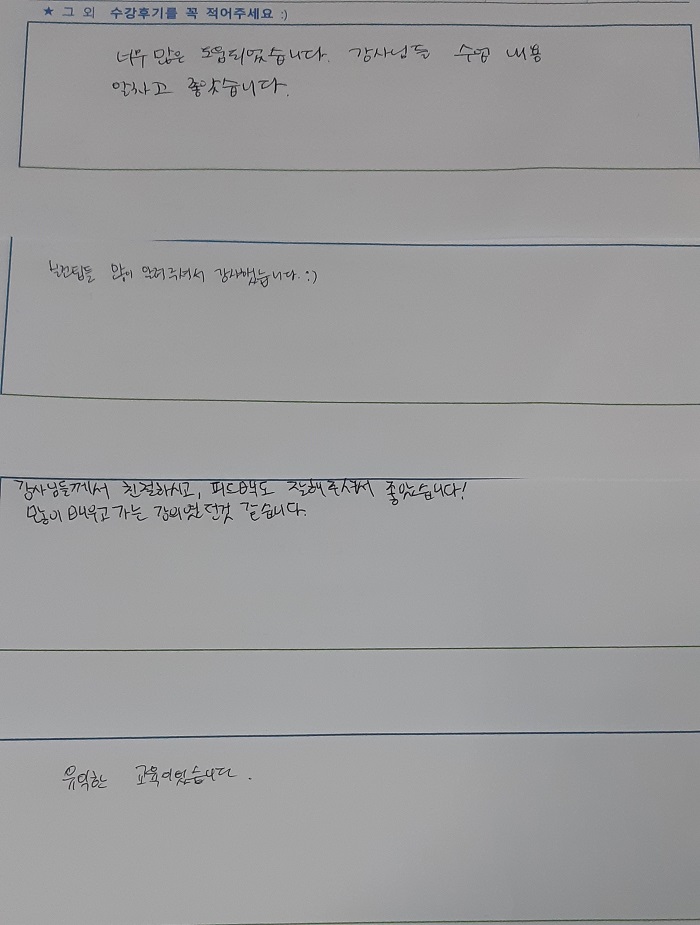 ★ 그 외 수강후기를 꼭 적어주세요 :)
너무 많은 도움되었습니다. 강사님들 수업 내용
알차고 좋았습니다.
많이 알려주셔서 감사했습니다. :)
강사님들께서 친절하시고, 피드백도 잘해주셔서 좋았습니다!
많이 배우고 가는 강의였던것 같습니다.
유익한 교육이었습니다.